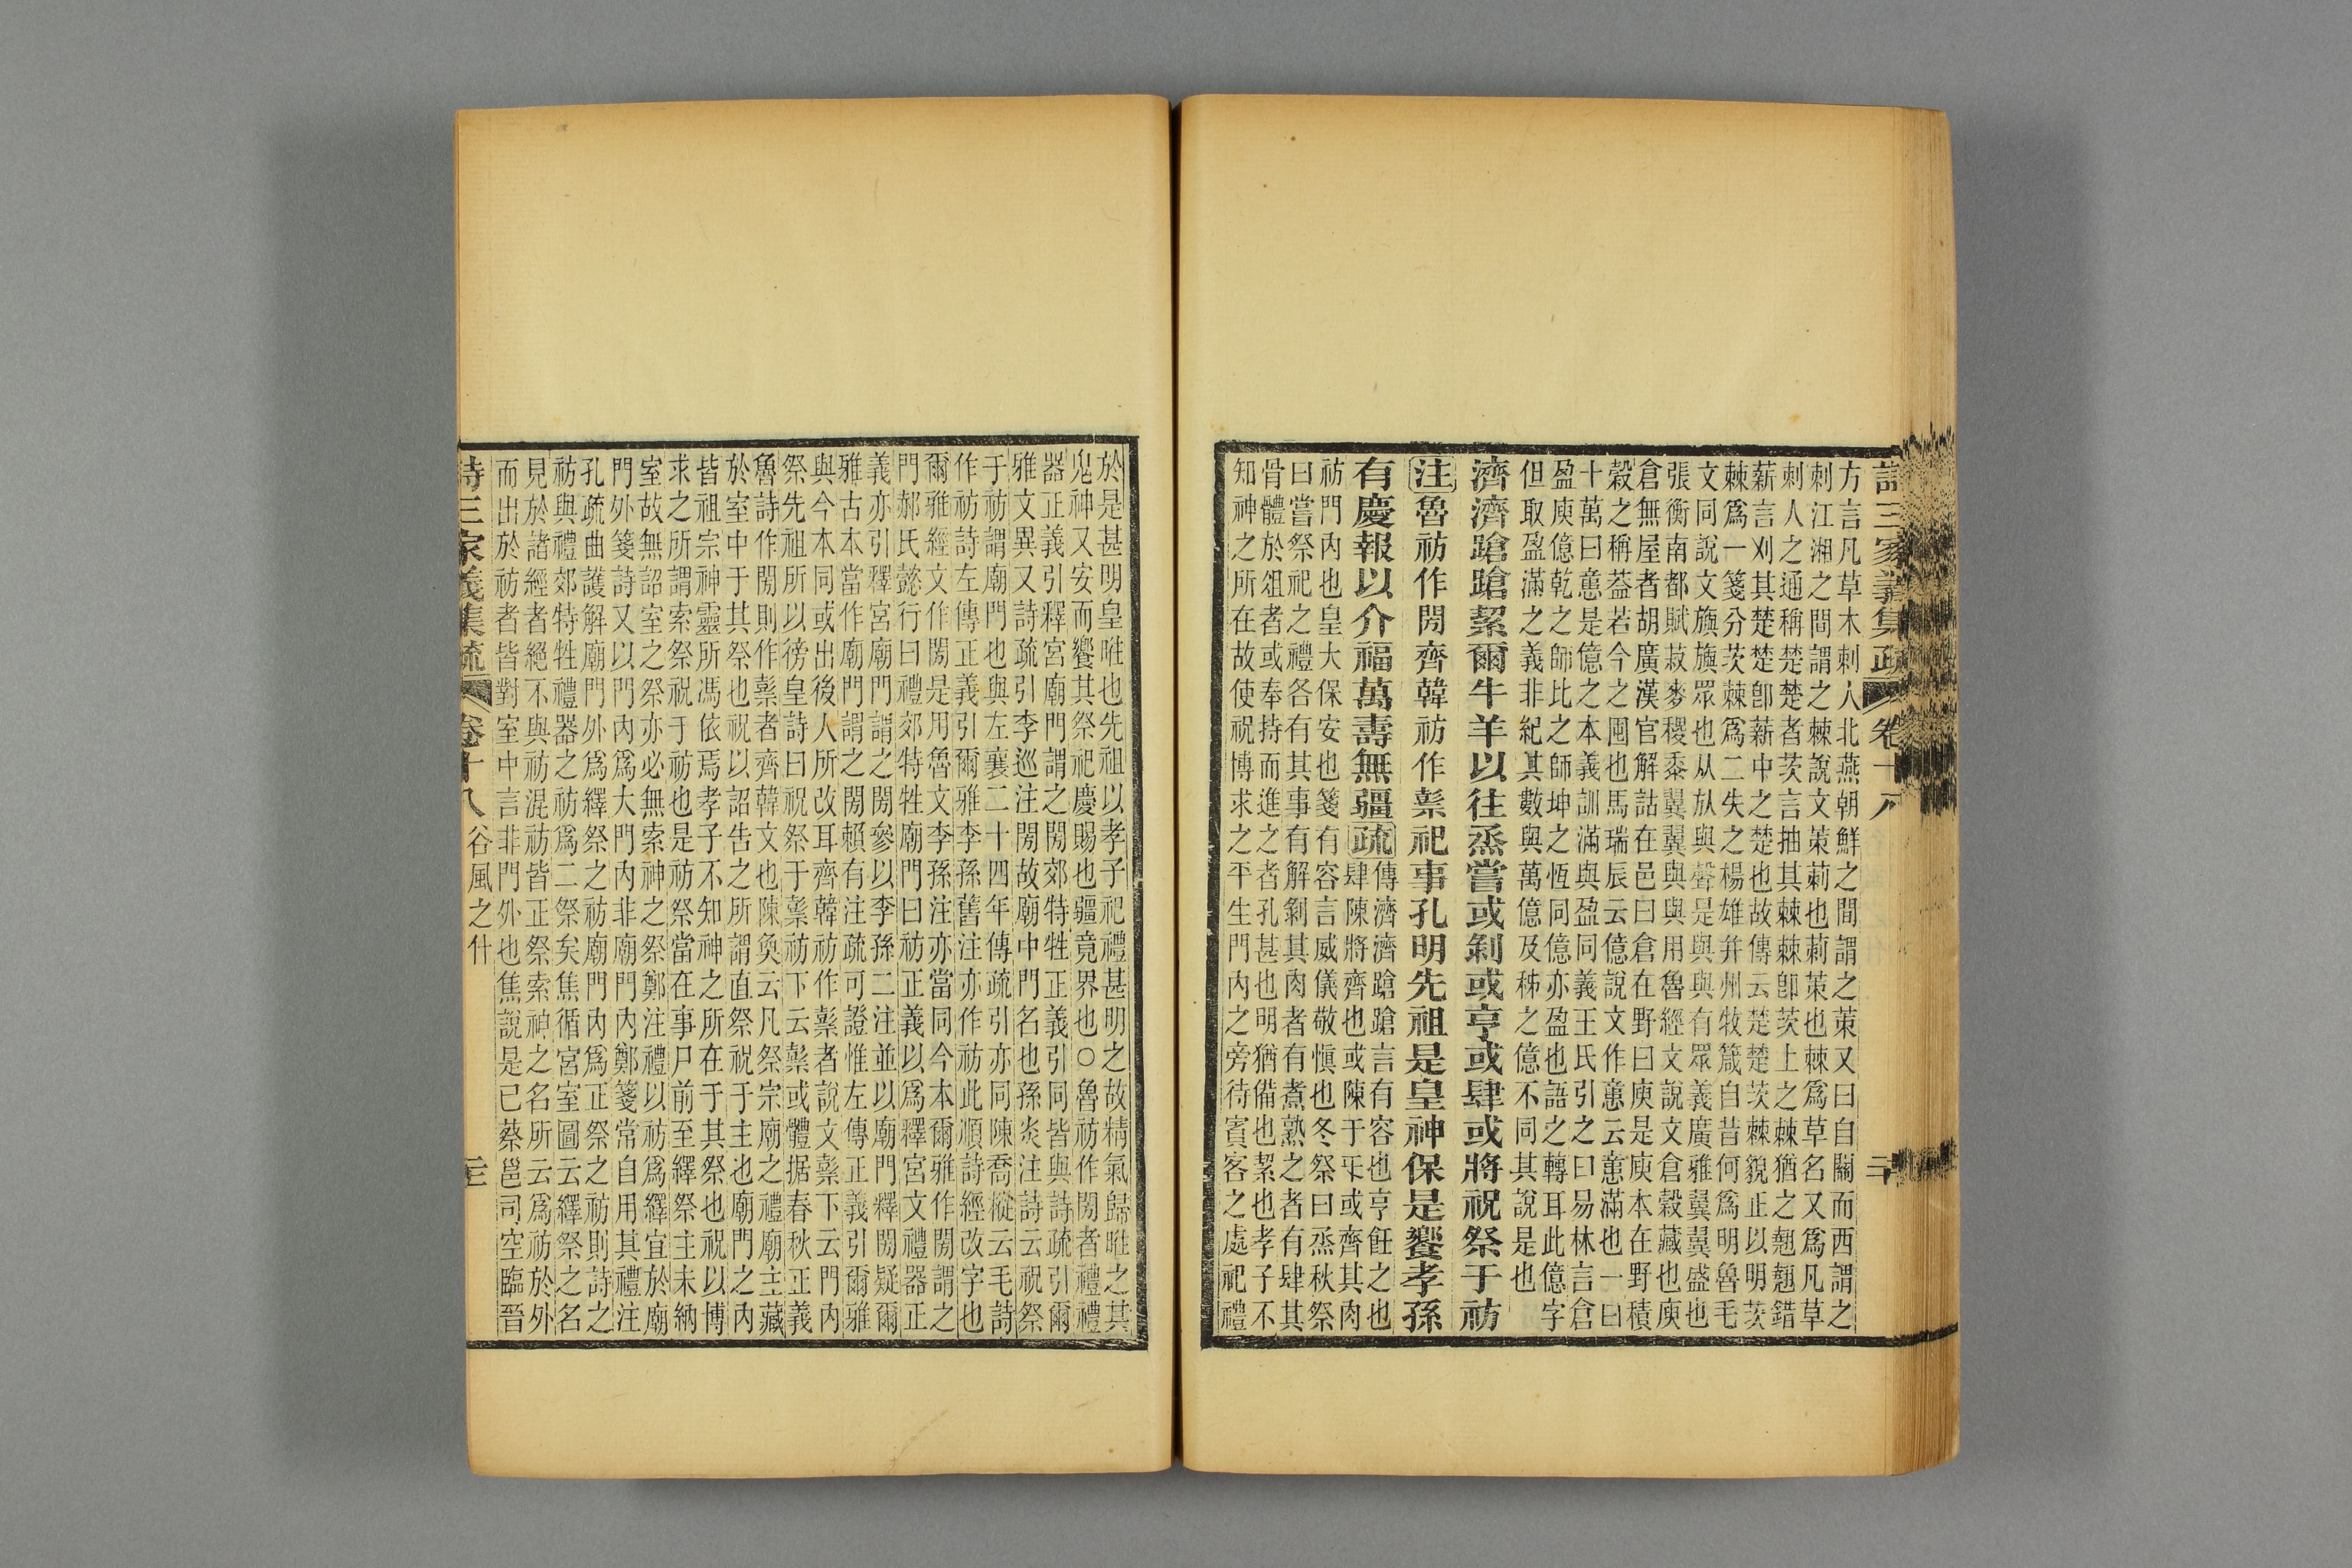 詩三家義集疏 卷十八 二十
方言凡草木刺人北燕朝鮮之間謂之茦又曰自關而西謂之
刺江湘之間謂之棘說文茦莿也莿茦也棘爲草名又爲凡草
刺人之通稱楚楚者茨言抽其棘棘卽茨上之棘猶之翹翹錯
薪言刈其楚楚卽薪中之楚也故傳云楚楚茨棘貌正以明茨
棘爲一箋分茨棘爲二失之楊雄并州牧箴自昔何爲明魯毛
文同說文旟旟眾也从㫃與聲是與與有眾義廣雅翼翼盛也
張衡南都賦菽麥稷黍翼翼與與用魯經文說文倉穀藏也庾
倉無屋者胡廣漢官解詁在邑曰倉在野曰庾是庾本在野積
穀之稱葢若今之囤也馬瑞辰云億說文作意云意滿也一曰
十萬曰意是億之本義訓滿與盈同義王氏引之曰易林言倉
盈庾億乾之師比之師坤之恆同億亦盈也語之轉耳此億字
但取盈滿之義非紀其數與萬億及秭之億不同其說是也
濟濟蹌蹌絜爾牛羊以往烝嘗或剝或亨或肆或將祝祭于祊
注魯祊作閍齊韓祊作䃾祀事孔明先祖是皇神保是饗孝孫
有慶報以介福萬壽無疆疏傳濟濟蹌蹌言有容也亨飪之也
肆陳將齊也或陳于互或齊其肉
祊門內也皇大保安也箋有容言威儀敬愼也冬祭曰烝秋祭
曰嘗祭祀之禮各有其事有解剝其肉者有煮熟之者有肆其
骨體於俎者或奉持而進之者孔甚也明猶備也絜也孝子不
知神之所在故使祝博求之平生門內之旁待賓客之處祀禮
於是甚明皇暀也先祖以孝子祀禮甚明之故精氣歸暀之其
鬼神又安而饗其祭祀慶賜也疆竟界也○魯祊作閍者禮禮
器正義引釋宮廟門謂之閍郊特牲正義引同皆與詩疏引爾
雅文異又詩疏引李巡注閍故廟中門名也孫炎注詩云祝祭
于祊謂廟門也與左襄二十四年傳疏引亦同陳喬樅云毛詩
作祊詩左傳正義引爾雅李孫舊注亦作祊此順詩經改字也
爾雅經文作閍是用魯文李孫注亦當同今本爾雅作閍謂之
門郝氏懿行曰禮郊特牲廟門曰祊正義以爲釋宮文禮器正
義亦引釋宮廟門謂之閍參以李孫二注並以廟門釋閍疑爾
雅古本當作廟門謂之閍賴有注疏可證惟左傳正義引爾雅
與今本同或出後人所改耳齊韓祊作䃾者說文䃾下云門內
祭先祖所以徬皇詩曰祝祭于䃾祊下云䃾或體据春秋正義
魯詩作閍則作䃾者齊韓文也陳奐云凡祭宗廟之禮廟主藏
於室中于其祭也祝以詔告之所謂直祭祝于主也廟門之內
皆祖宗神靈所馮依焉孝子不知神之所在于其祭也祝以博
求之所謂索祭祝于祊也是祊祭當在事尸前至繹祭主未納
室故無詔室之祭亦必無索神之祭鄭注禮以祊爲繹宜於廟
門外箋詩又以門內爲大門內非廟門內鄭箋常自用其禮注
孔疏曲護解廟門外爲繹祭之祊廟門內爲正祭之祊則詩之
祊與禮郊特牲禮器之祊爲二祭矣焦循宮室圖云繹祭之名
見於諸經者絕不與祊混祊皆正祭索神之名所云爲祊於外
而出於祊者皆對室中言非門外也焦說是已蔡邕司空臨晉
詩三家義集疏 卷十八 谷風之什